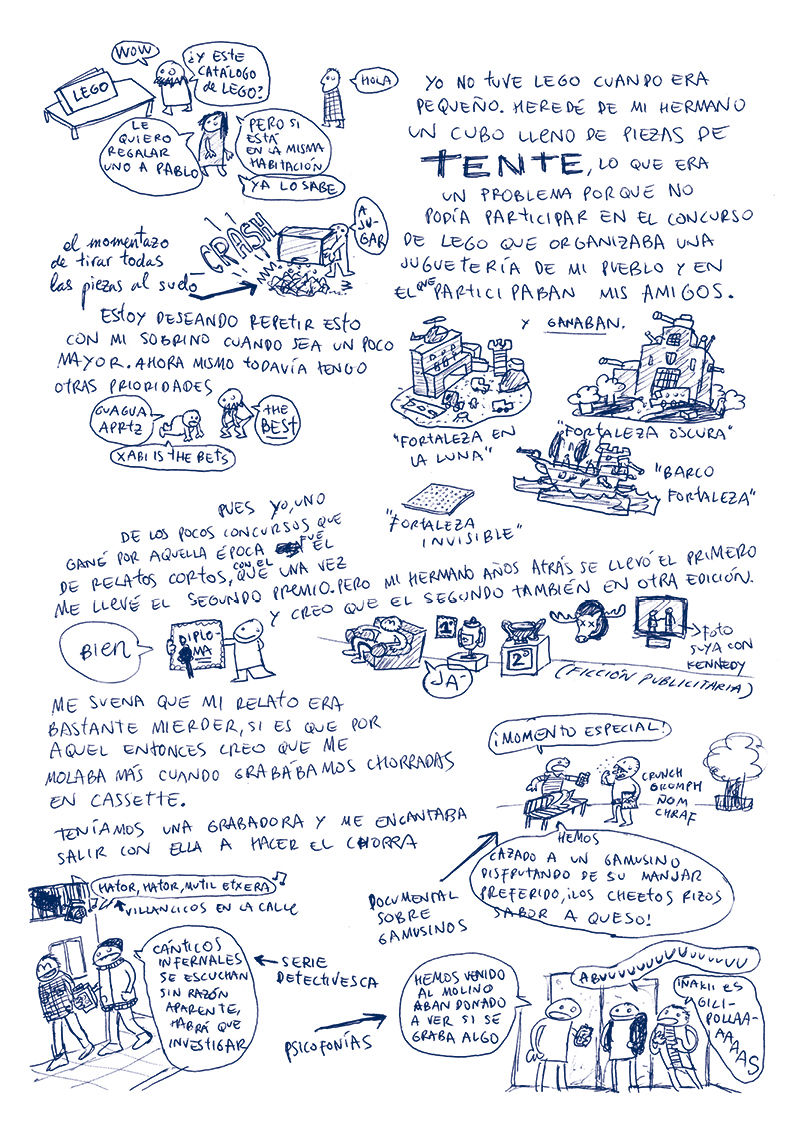 WOW
¿Y ESTE
CATÁLOGO
DE LEGO?
LEGO
HOLA
LE
QUIERO
REGALAR
UNO A PABLO
PERO SI
ESTÁ
EN LA MISMA
HABITACIÓN
YA LO SABE
YO NO TUVE LEGO CUANDO ERA
PEQUEÑO. HEREDÉ DE MI HERMANO
UN CUBO LLENO DE PIEZAS DE
TENTE, LO QUE ERA
UN PROBLEMA PORQUE NO
PODÍA PARTICIPAR EN EL CONCURSO
DE LEGO QUE ORGANIZABA UNA
JUGUETERÍA DE MI PUEBLO Y EN
EL QUE PARTICIPABAN MIS AMIGOS.
Y GANABAN.
el momentazo
de tirar todas
las piezas al suelo
CRASH!
A
JU-
GAR
ESTOY DESEANDO REPETIR ESTO
CON MI SOBRINO CUANDO SEA UN POCO
MAYOR. AHORA MISMO TODAVÍA TENGO
OTRAS PRIORIDADES
GUAGUA
APRTZ
THE
BEST
XABI IS THE BETS
"FORTALEZA EN
LA LUNA"
"FORTALEZA OSCURA"
"BARCO
FORTALEZA"
"FORTALEZA
INVISIBLE"
PUES YO, UNO
DE LOS POCOS CONCURSOS QUE
GANÉ POR AQUELLA ÉPOCA FUE EL
DE RELATOS CORTOS, CON EL QUE UNA VEZ
ME LLEVÉ EL SEGUNDO PREMIO. PERO MI HERMANO AÑOS ATRÁS SE LLEVÓ EL PRIMERO
Y CREO QUE EL SEGUNDO TAMBIÉN EN OTRA EDICIÓN.
BIEN
DIPLO-
MA
1º
2º
JA-
FOTO
SUYA CON
KENNEDY
(FICCIÓN PUBLICITARIA)
ME SUENA QUE MI RELATO ERA
BASTANTE MIERDER, SI ES QUE POR
AQUEL ENTONCES CREO QUE ME
MOLABA MÁS CUANDO GRABÁBAMOS CHORRADAS
EN CASSETTE.
TENÍAMOS UNA GRABADORA Y ME ENCANTABA
SALIR CON ELLA A HACER EL CHORRA
¡MOMENTO ESPECIAL!
CRUNCH
GROMPH
ÑOM
CHRAF
HEMOS
CAZADO A UN GAMUSINO
DISFRUTANDO DE SU MANJAR
PREFERIDO, ¡LOS CHEETOS RIZOS
SABOR A QUESO!
DOCUMENTAL
SOBRE
GAMUSINOS
HATOR, HATOR, MUTIL ETXERA
VILLANCICOS EN LA CALLE
CÁNTICOS
INFERNALES
SE ESCUCHAN
SIN RAZÓN
APARENTE,
HABRÁ QUE
INVESTIGAR
SERIE
DETECTIVESCA
PSICOFONÍAS
HEMOS VENIDO
AL MOLINO
ABANDONADO
A VER SI SE
GRABA ALGO
ABUUUUUUUUUUUUUUU
IÑAKI ES
GILI-
POLLAA-
AAAAAS